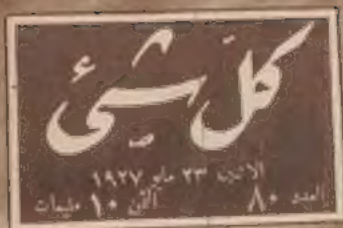 كل شئ
الاثنين ٢٣ مايو ١٩٢٧
العدد ٨٠ الثمن ١٠ مليمات